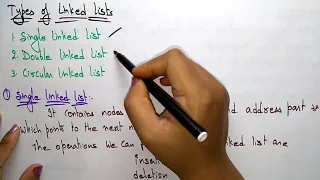 Types of Linked Lists
1. Single linked list
2. Double linked list
3. Circular linked list
① Single linked list:-
It contains nodes and address part
which points to the next n
The operations we can linked list are
insert
deletion